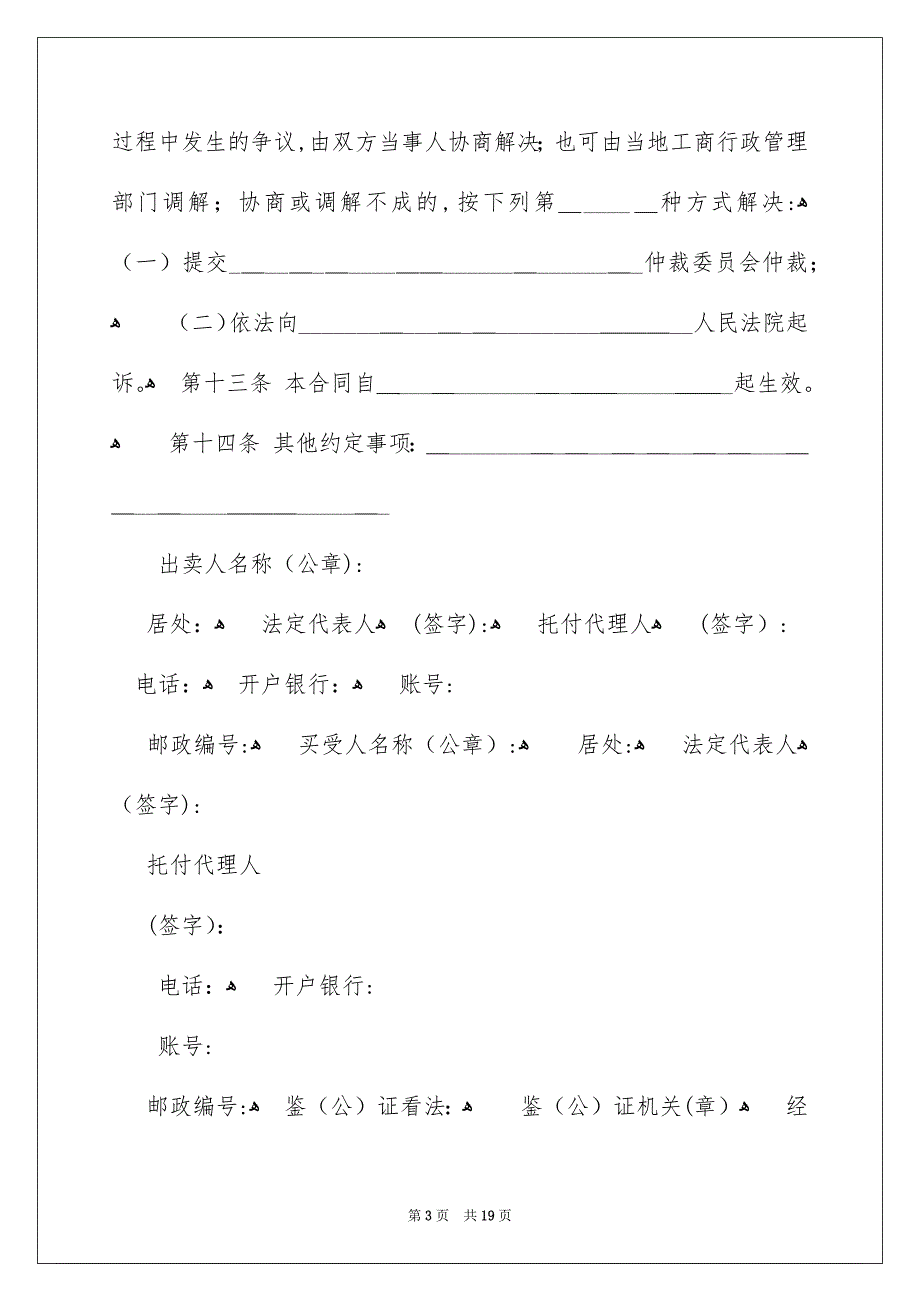 过程中发生的争议,由双方当事人协商解决;也可由当地工商行政管理
部门调解;协商或调解不成的,按下列第__ ____ __种方式解决:ﻫ
(一)提交___________________________________仲裁委员会仲裁;
ﻫ (二)依法向__________________________________人民法院起
诉。ﻫ 第十三条 本合同自______________________________起生效。
ﻫ 第十四条 其他约定事项:_________________________________
________________________
出卖人名称(公章):
居处:ﻫ 法定代表人ﻫ (签字):ﻫ 托付代理人ﻫ (签字):
电话:ﻫ 开户银行:ﻫ 账号:
邮政编号:ﻫ 买受人名称(公章):ﻫ 居处:ﻫ 法定代表人ﻫ
(签字):
托付代理人
(签字):
电话:ﻫ 开户银行:
账号:
邮政编号:ﻫ 鉴(公)证看法:ﻫ 鉴(公)证机关(章)ﻫ 经
第 3 页 共 19 页